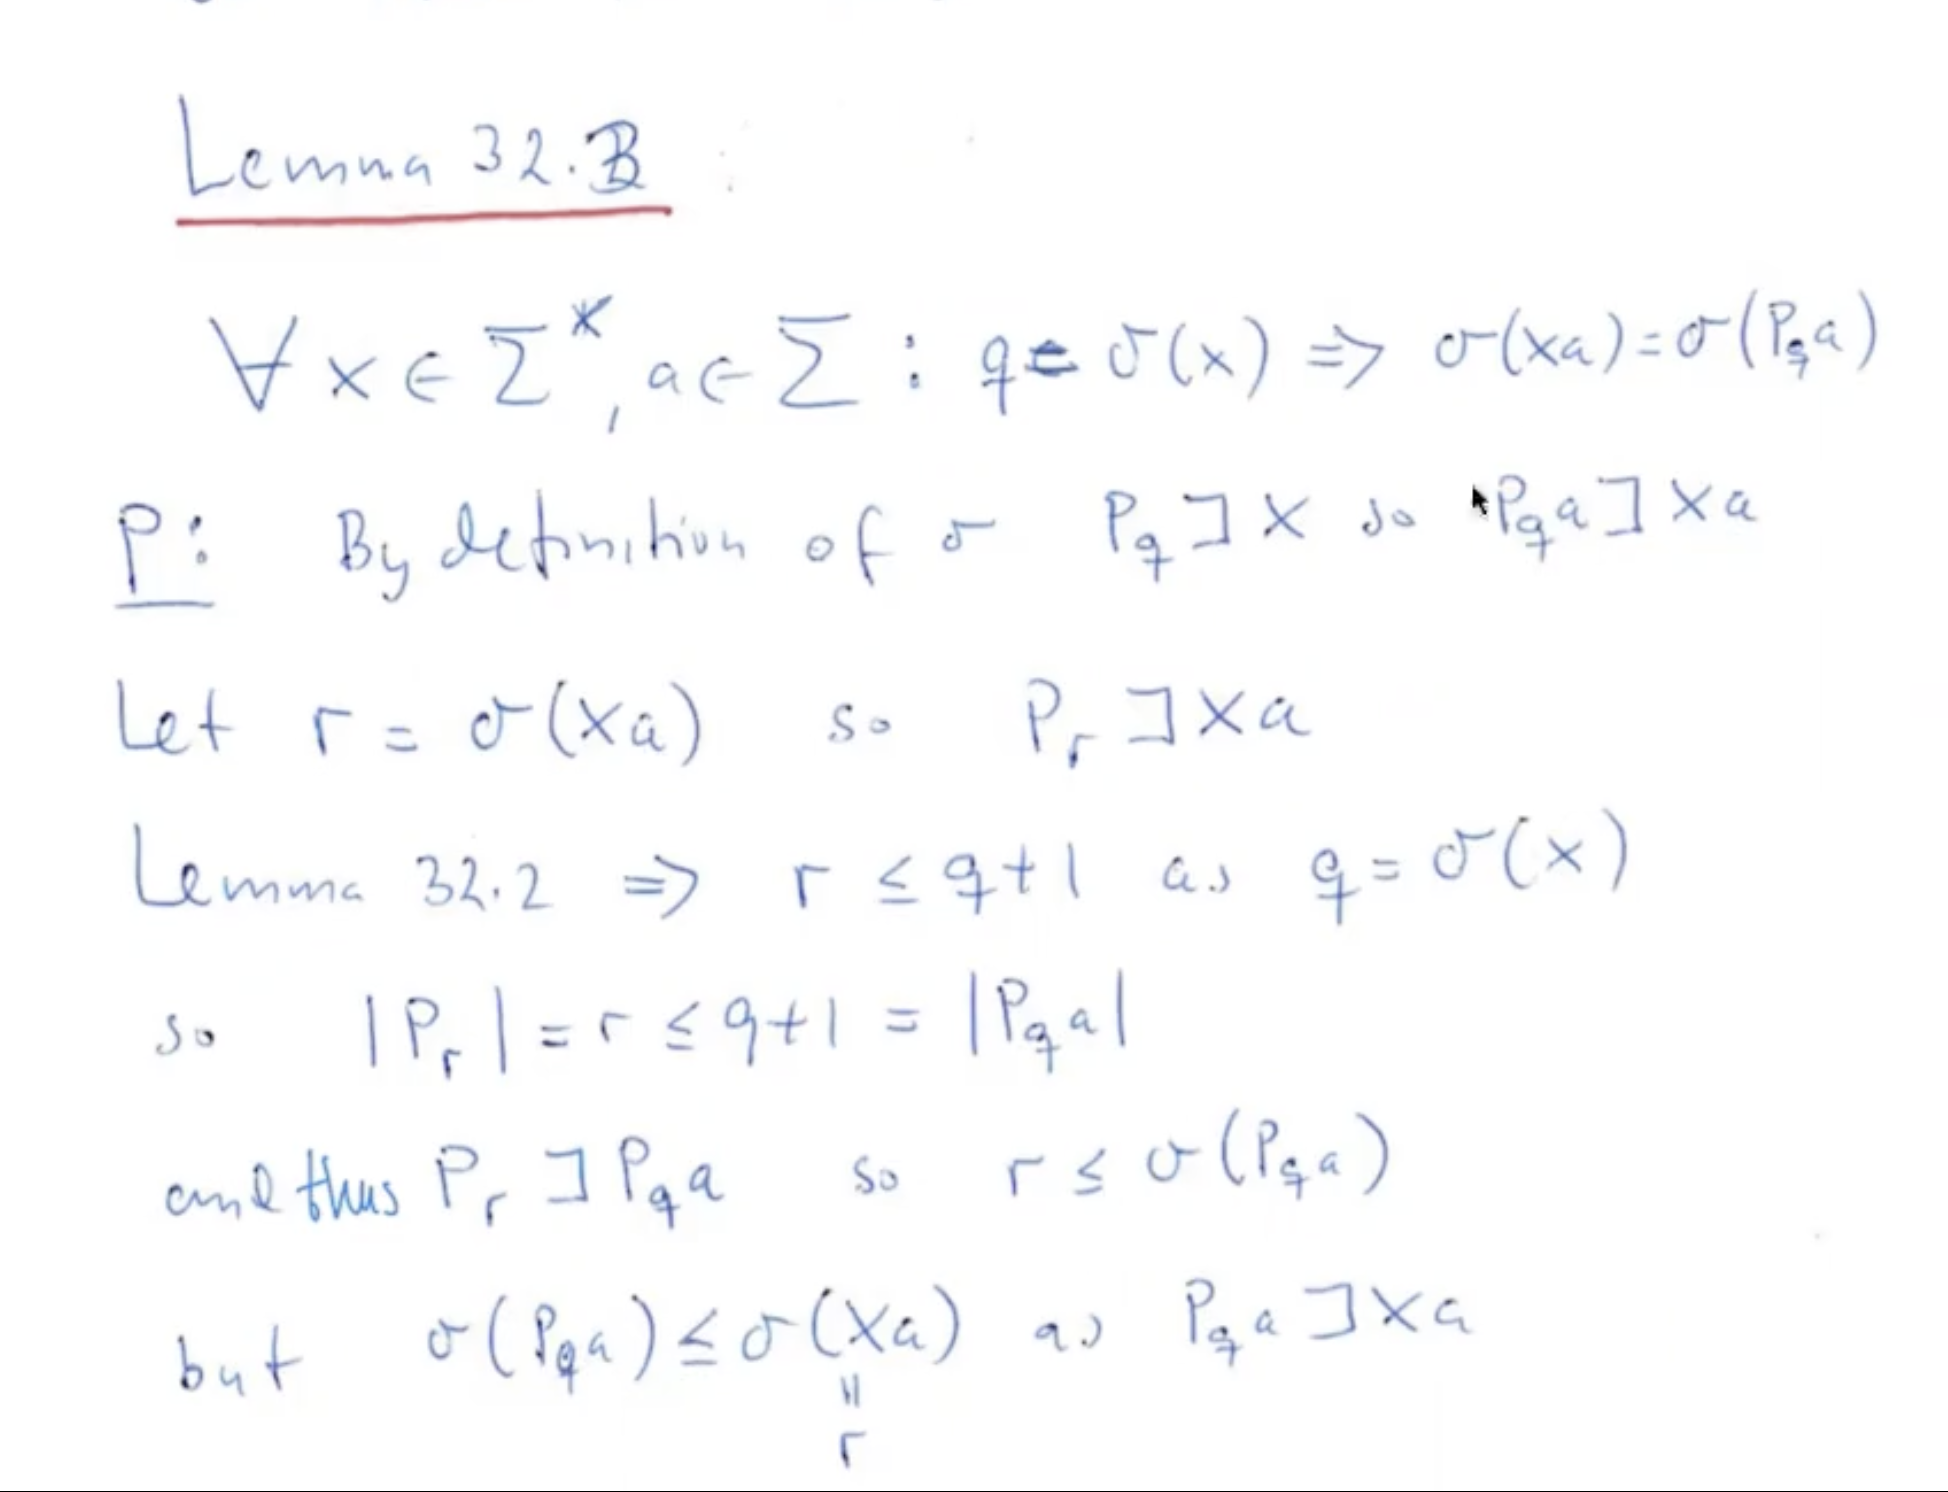 Lemma 32.B :
∀ x ∈ Σ*, a ∈ Σ : q = σ(x) ⇒ σ(xa) = σ(P_q a)
P: By definition of σ P_q ⊐ x so P_q a ⊐ xa
Let r = σ(xa) so P_r ⊐ xa
Lemma 32.2 ⇒ r ≤ q+1 as q = σ(x)
so |P_r| = r ≤ q+1 = |P_q a|
and thus P_r ⊐ P_q a so r ≤ σ(P_q a)
but σ(P_q a) ≤ σ(xa) as P_q a ⊐ xa
=
r